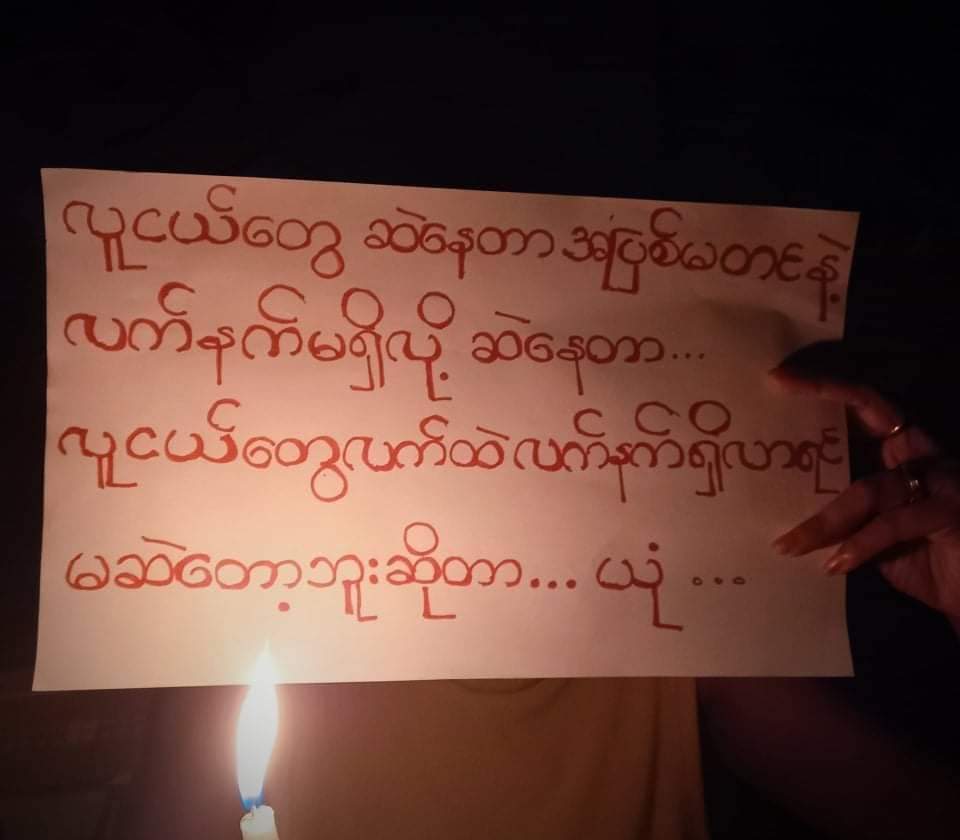 လူငယ်တွေ ဆဲနေတာ အပြစ်မတင်နဲ့
လက်နက်မရှိလို့ ဆဲနေတာ...
လူငယ်တွေလက်ထဲ လက်နက်ရှိလာရင်
မဆဲတော့ဘူးဆိုတာ... ယုံ ...